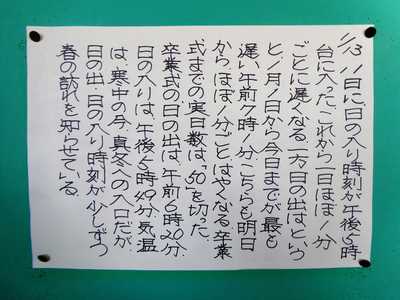 1/13 11日に日の入り時刻が午後5時
台に入った。これから一日ほぼ1分
ごとに遅くなる。一方、日の出はという
と、1月1日から今日までが最も
遅い午前7時1分。こちらも明日
から、ほぼ1分ごとはやくなる。卒業
式までの実日数は、「50」を切った。
卒業式の日の出は、午前6時20分。
日の入りは、午後5時49分。気温
は、寒中の今、真冬への入口だが、
日の出・日の入り時刻が少しずつ
春の訪れを知らせている。